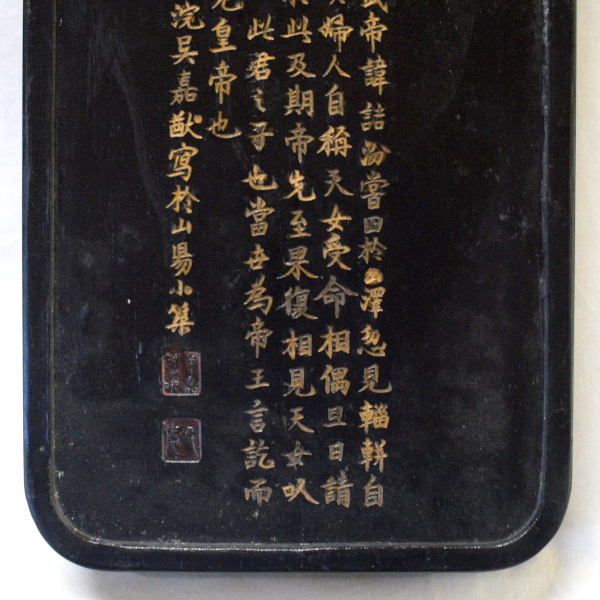 帝諱詰汾嘗田於山澤忽見輜軿自
婦人自稱天女受命相偶旦日請
此及期帝先至果復相見天女以
此君之子也當世為帝王言訖而
皇帝也
院吴嘉猷寫於山陽小築